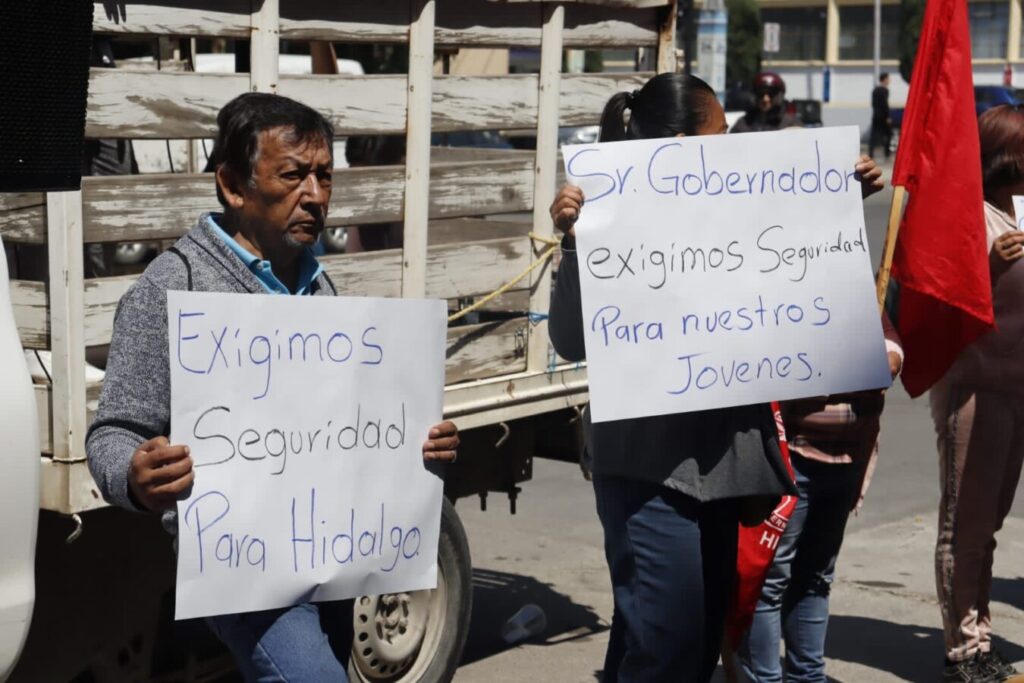 Exigimos
Seguridad
Para Hidalgo
Sr. Gobernador
exigimos Seguridad
Para nuestros
Jovenes.